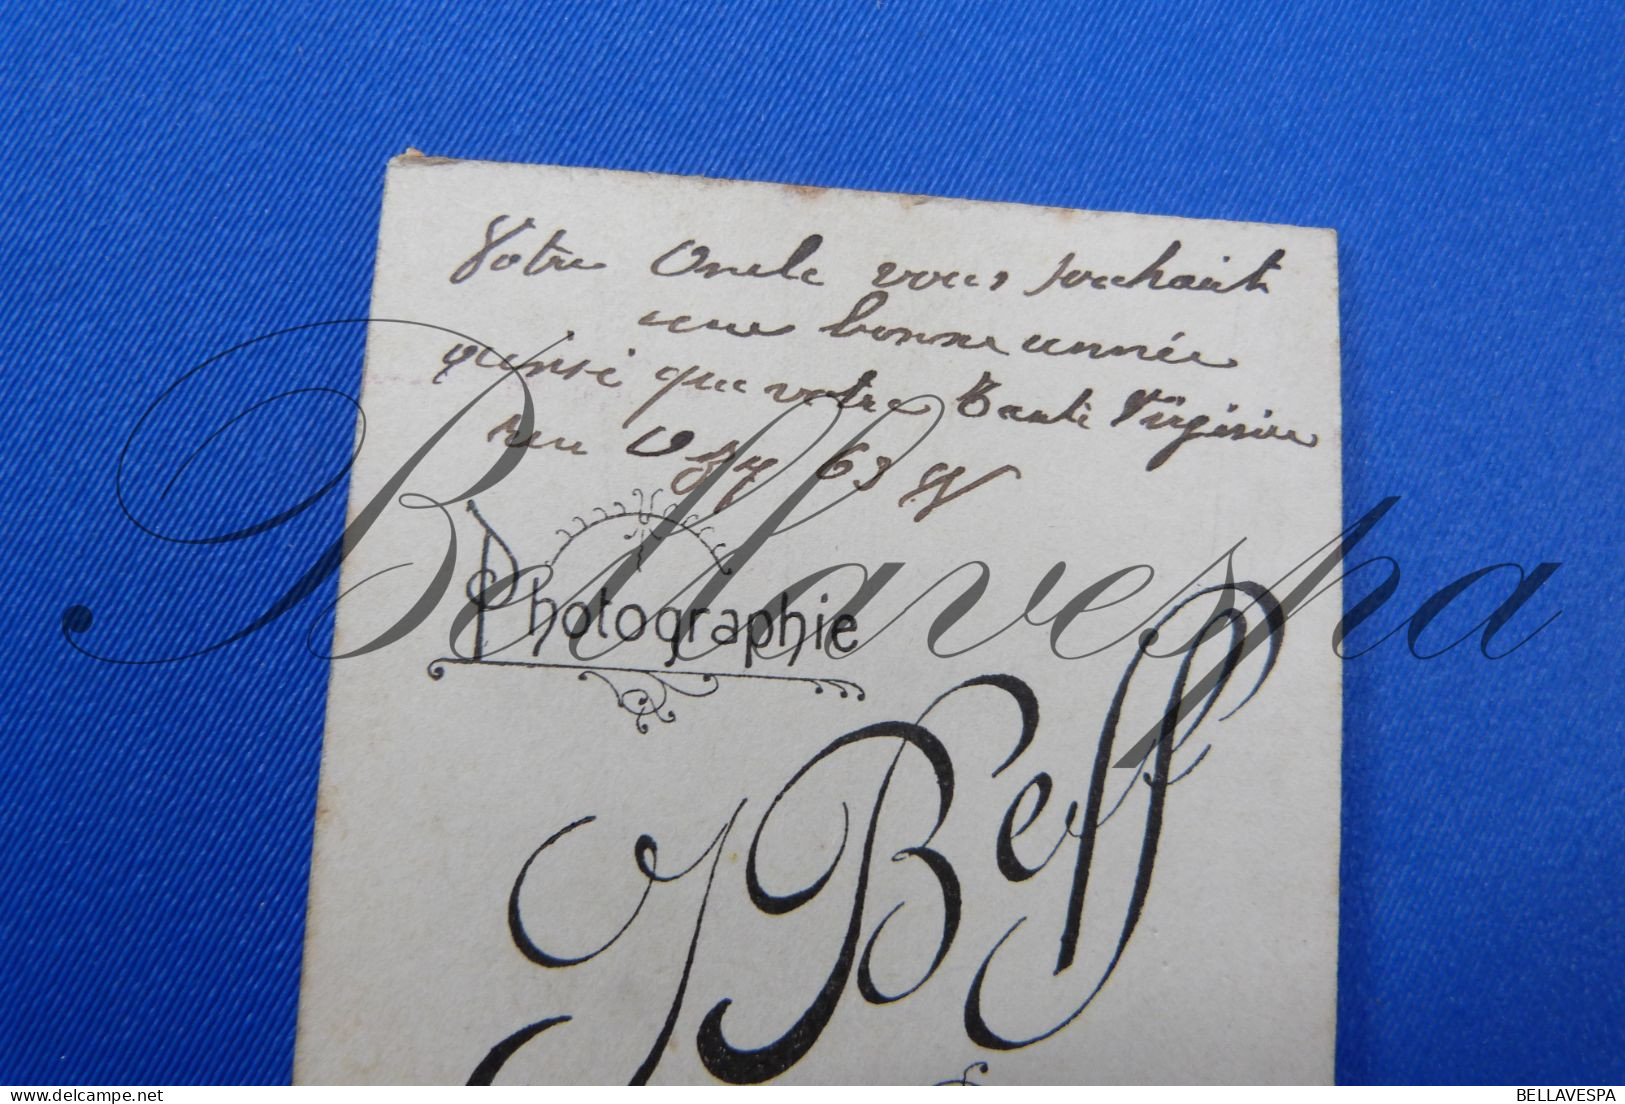 Votre Oncle vous souhait
une bonne année
que votre Tante Virginie
63
Photographie
J Beff
Bellavespa
delcampe.net
BELLAVESPA